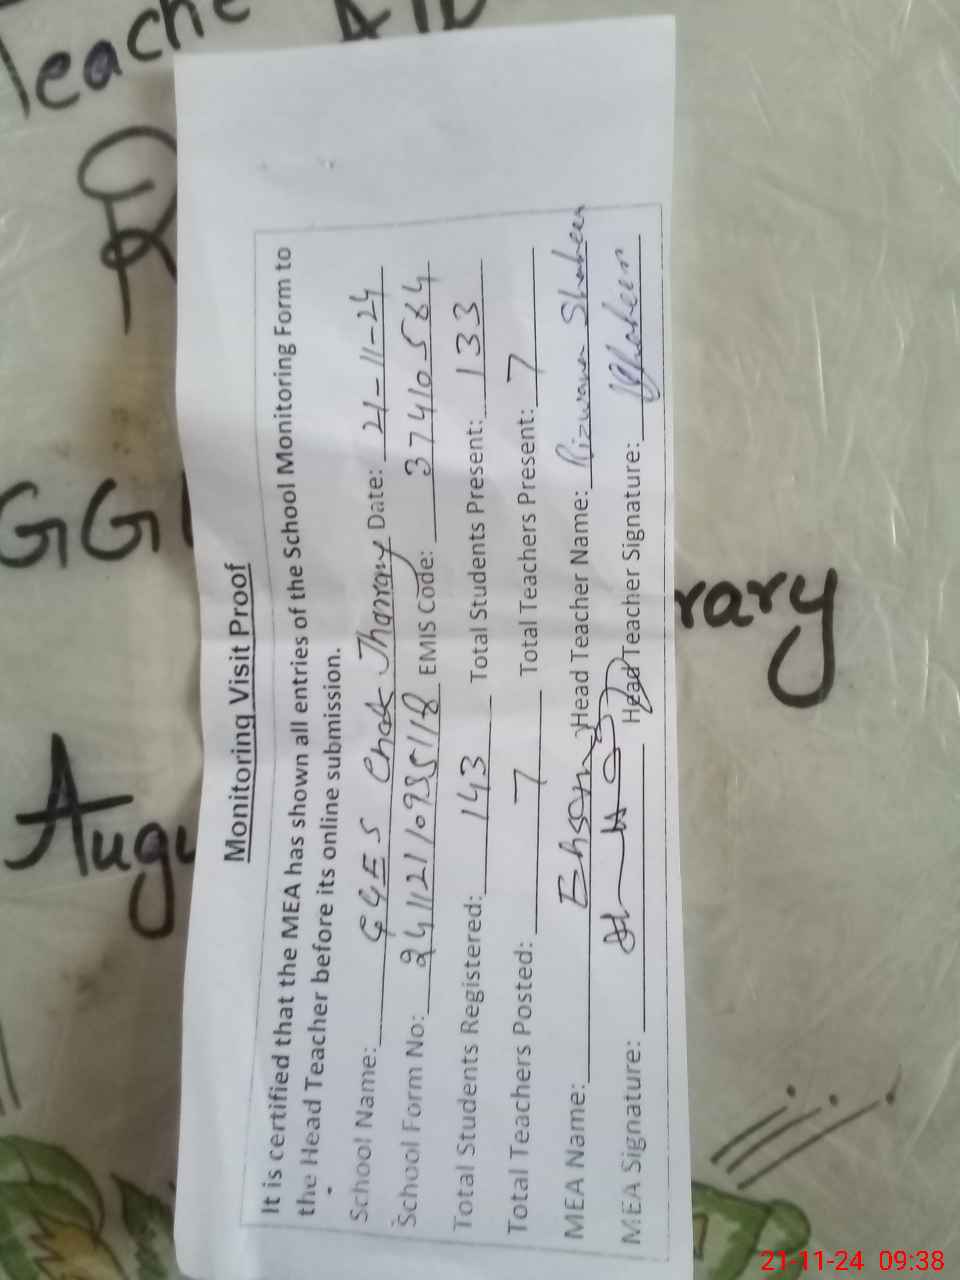 Teache
R
GG
Augu
rary
Monitoring Visit Proof
It is certified that the MEA has shown all entries of the School Monitoring Form to
the Head Teacher before its online submission.
School Name: GGES Chak Jhanray Date: 21-11-24
School Form No: 2411211093S118 EMIS Code: 37410564
Total Students Registered: 143 Total Students Present: 133
Total Teachers Posted: 7 Total Teachers Present: 7
MEA Name: Head Teacher Name: Rizwana Shaheen
MEA Signature: Head Teacher Signature: Shaheen
21-11-24 09:38